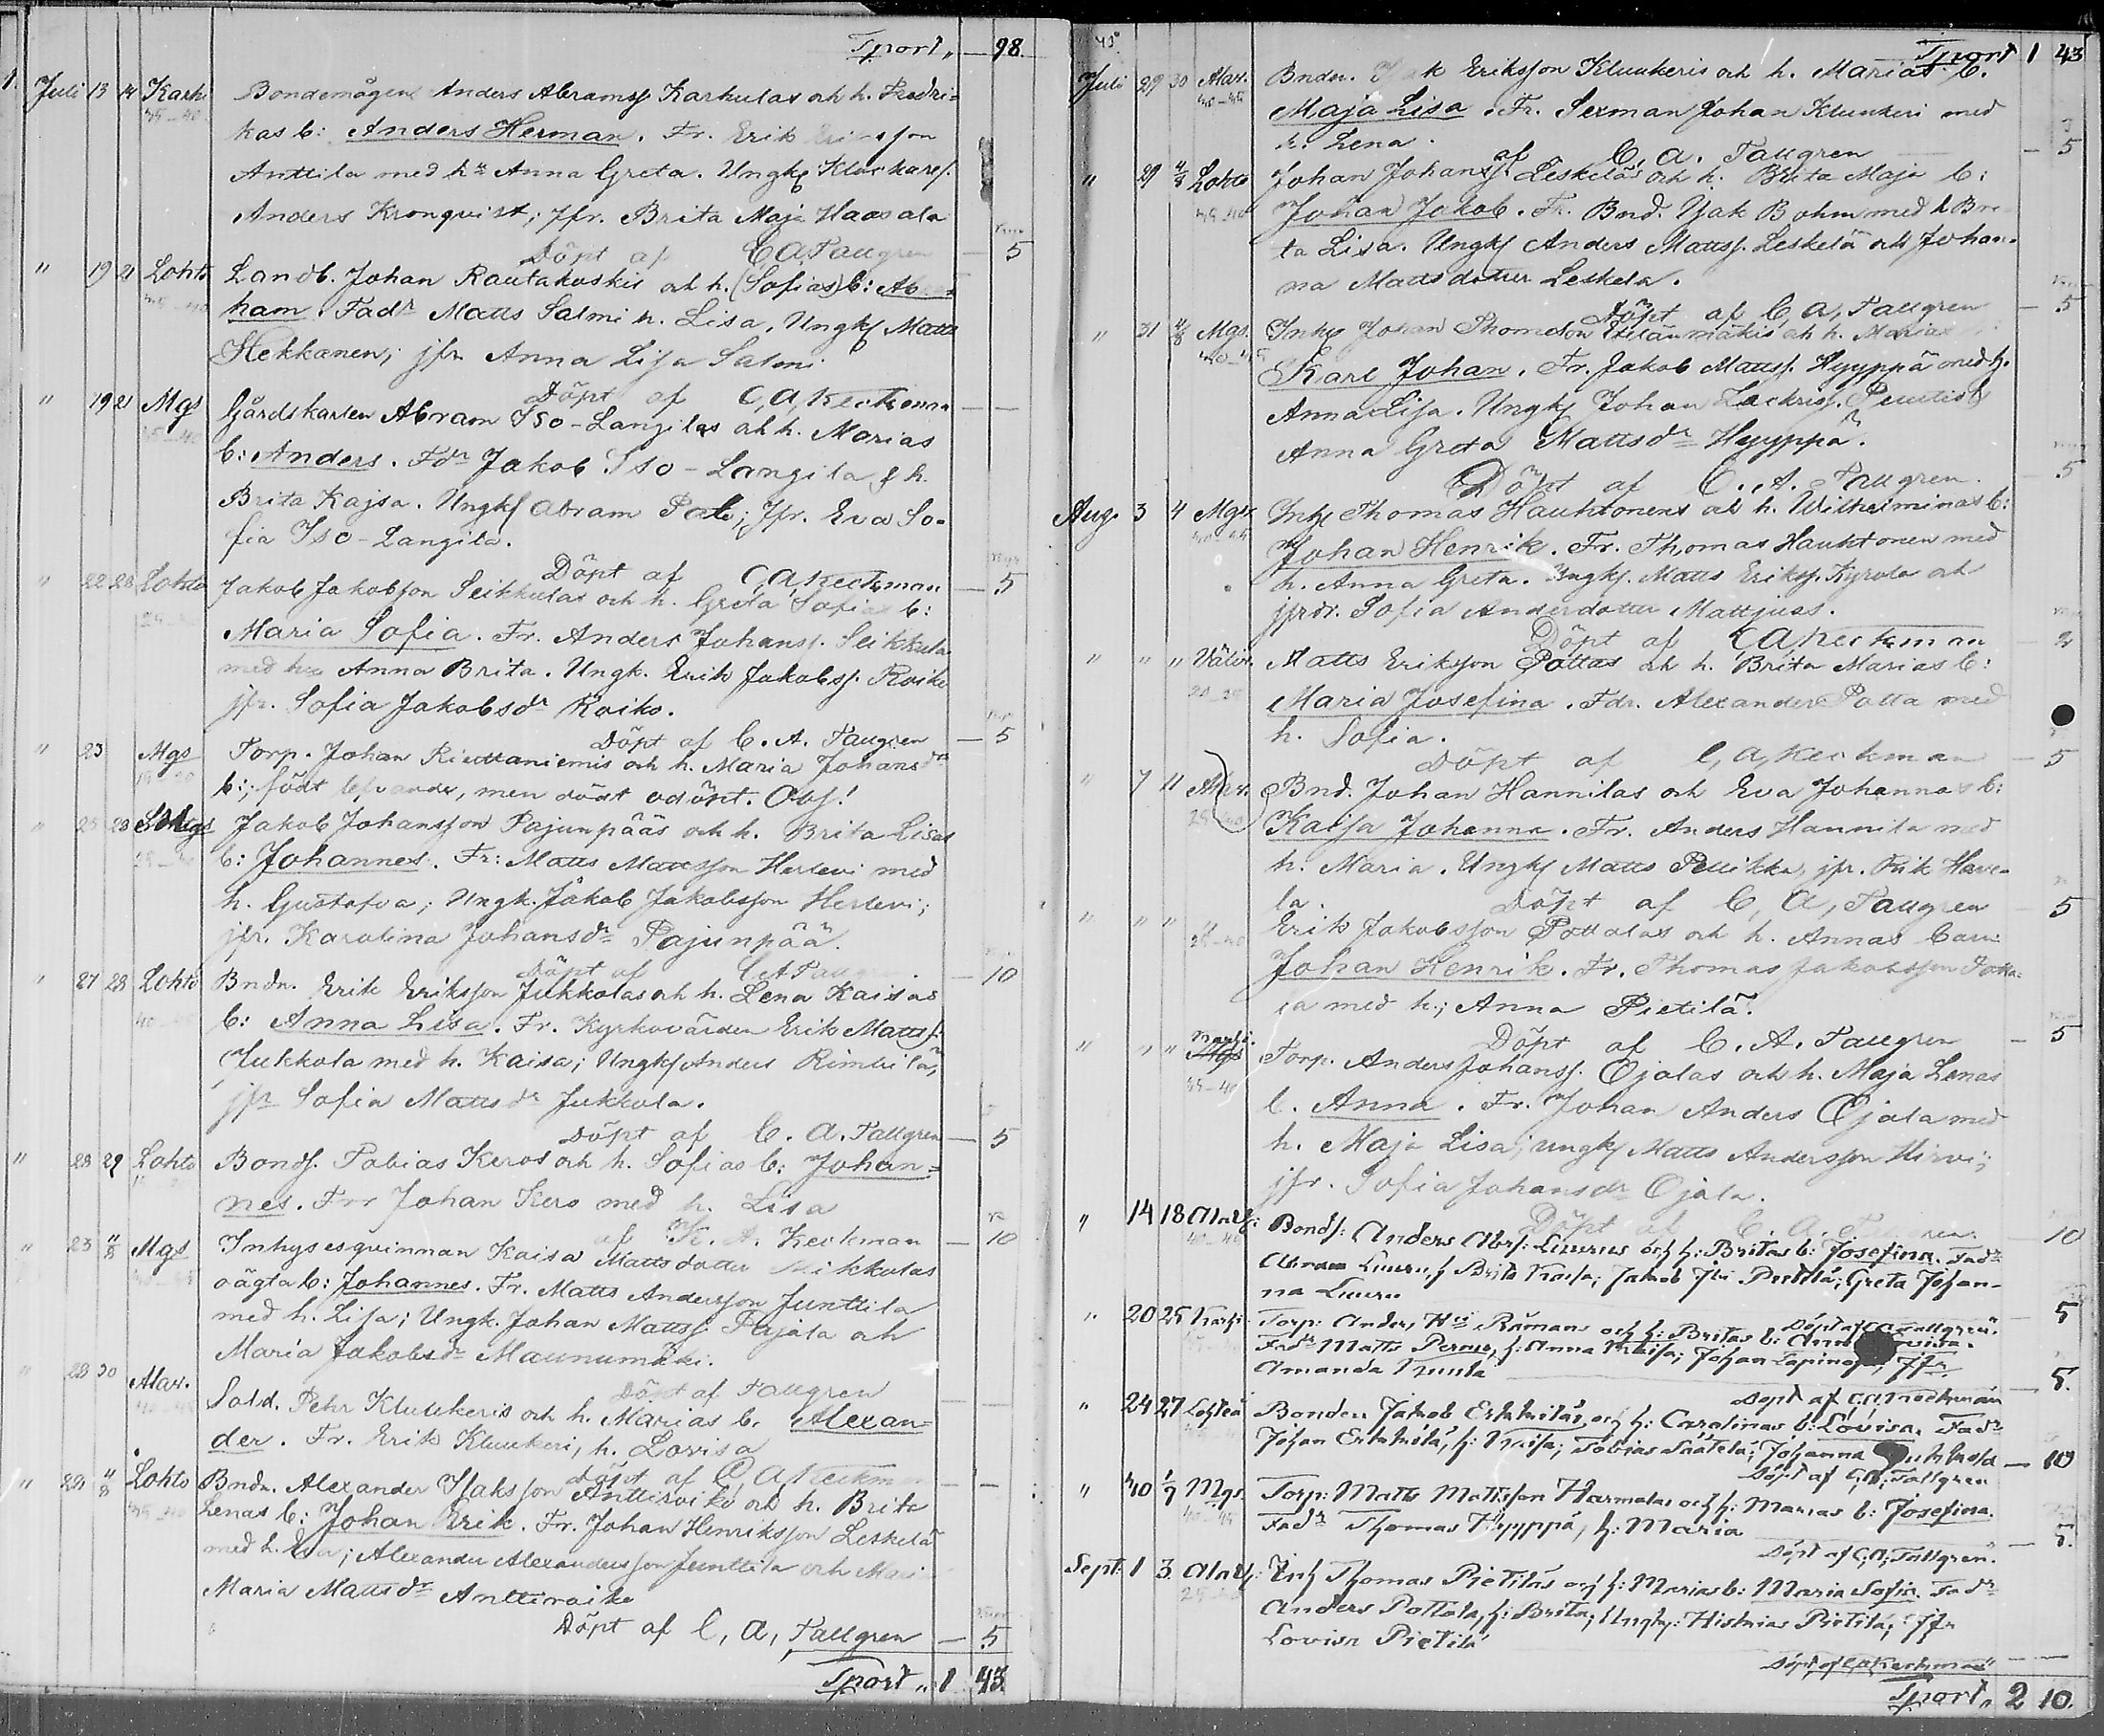 Tport „ — 98.
Juli 13 14 Karh. Bondemågen Anders Abramsj Karkulas och h. Fredri=
35–40 kas b: Anders Herman. Fr. Erik Eriksson
Anttila med hu Anna Greta. Ungk Klockares.
Anders Kronqvist; jfr. Brita Maja Haasala
Döpt af C A Tallgren — 5
" 19 21 Lohto Landb. Johan Rautakoskis och h. (Sofias) b: Ab
ham. Fadr Matts Salmi h. Lisa, Ungk Matts
Hekkanen; jfr Anna Lisa Salmi
Döpt af C, A, Keckman — —
" 19 21 Mgs Gårdskarlen Abram Iso-Langilas och h. Marias
b: Anders. Fdr Jakob Iso-Langila & h.
Brita Kajsa. Ungk Abram Pale; Jfr. Eva So-
fia Iso-Langila.
Döpt af C, A, Keckman — 5
" 22 23 Lohto Jakob Jakobsson Seikkulas och h. Greta Sofias b:
Maria Sofia. Fr. Anders Johanss. Seikkula
med hu Anna Brita. Ungk. Erik Jakobss. Roiko
jfr. Sofia Jakobsdr Roiko.
Döpt af C. A. Tallgren — 5
" 23 Mgs Torp. Johan Rieuttaniemis och h. Maria Johansdr
b:; födt lefvande, men dödt odöpt. Obs!
" 25 28 Mgs Jakob Johansson Pajunpääs och h. Brita Lisas
b: Johannes. Fr: Matts Mattsson Herlevi med
h. Gustafva; Ungk. Jakob Jakobsson Herlevi;
jfr. Karolina Johansdr Pajunpää.
Döpt af C A Tallgren — 10
" 27 28 Lohto Bndn. Erik Eriksson Jukkolas och h. Lena Kaisas
40 b: Anna Lisa. Fr. Kyrkovärden Erik Mattss.
Jukkola med h. Kaisa; Ungk Anders Rimbilä,
jfr Sofia Mattsdr Jukkola.
Döpt af C. A. Tallgren — 5
" 28 29 Lohto Bonds. Tobias Keros och h. Sofias b: Johan=
nes. Frr Johan Kero med h. Lisa
af K. A. Keckman — 10
" 23 4/8 Mgs Inhysesqvinnan Kaisa Mattsdotter ikkolas
oägta b: Johannes. Fr. Matts Andersson Junttila
med h. Lisa; Ungk. Johan Mattss. Pajala och
Maria Jakobsdr Maunumäki.
Döpt af Tallgren —
" 28 30 Alav. Sold. Pehr Kluukeris och h. Marias b. Alexan=
der. Fr. Erik Kluukeri, h. Lovisa
Döpt af C, A, Keckman — —
" 28 4/8 Lohto Bndn. Alexander Isaksson Anttiroiko och h. Brita
35–40 Lenas b: Johan Erik. Fr. Johan Henriksson Leskelä
med h. Eva; Alexander Alexandersson Junttila och Mari
Maria Mattsdr Anttiroiko
Döpt af C, A, Tallgren — 5
Tport „ 1 43.
Tport 1 43
Juli 29 30 Alav. Bndn. Isak Eriksson Kluukeris och h. Marias b.
40–45 Maja Lisa. Fr. Sexman Johan Kluukeri med
h. Lena.
af C. A. Tallgren — 5
" 29 4/8 Lohto Johan Johanss. Leskeläs och h. Brita Maja b:
35–40 Johan Jakob. Fr. Bnd. Isak Bohm med h Bri
ta Lisa. Ungk Anders Mattss. Leskelä och Johan-
na Mattsdotter Leskelä.
Döpt af C, A, Tallgren — 5
" 31 4/8 Mgs. Inhs Johan Thomsson Ustäumäkis och h. Marias
Karl Johan. Fr. Jakob Mattss. Hyyppä med h.
Anna Lisa. Ungk Johan Zachriss. Penttilä
Anna Greta Mattsdr Hyyppä.
Döpt af C. A. Tallgren. 5
Aug. 3 4 Mgs. Inhs Thomas Hauhtonens och h. Wilhelminas b:
Johan Henrik. Fr. Thomas Hauhtonen med
h. Anna Greta. Ungk. Matts Erikss. Kyrola och
jfrdr. Sofia Andersdotter Mattjuss.
Döpt af C A Keckman — 2
" " " Väliv. Matts Eriksson Pottas och h. Brita Marias b:
Maria Josefina. Fdr. Alexander Potta med
h. Sofia.
Döpt af C, A, Keckman — 5
" 7 11 Alav. Bnd. Johan Hannilas och Eva Johannas b:
Kaisa Johanna. Fr. Anders Hannila med
h. Maria. Ungk Matts Pellikka, jfr. Frik Have-
la. Döpt af C, A, Tallgren — 5
" " " " Erik Jakobsson Pottalas och h. Annas barn
Johan Henrik. Fr. Thomas Jakobsson Potta-
la med h.; Anna Pietilä.
Döpt af C. A. Tallgren — 5
" " " Torp. Anders Johanss. Ojalas och h. Maja Lenas
35–40 b. Anna. Fr. Johan Anders Ojala med
h. Maja Lisa; ungk Matts Andersson Hirvi;
jfr. Sofia Johansdr Ojala.
Döpt af C. A. Tallgren. 10
" 14 18 Alav: Bonds: Anders Abrs: Liuerus och h: Britas b: Josefina. Fadr
Abram Liueru, h Brita Kaisa; Jakob Jsi Pietilä; Greta Johan-
na Liueru
Döpt af C A Tallgren. — 5
" 20 25 Karhi Torp: Anders H:s Råmans och h: Britas b: Anna Lovisa.
Fadr Matts Pernu, h: Anna Kaisa; Johan Lapinoja; Jfr
Amanda Kuula
Döpt af C, A, Keckman — 5.
" 24 27 Lohteå Bonden Jakob Erkkiläs, och h: Carolinas b: Lovisa. Fadr
Johan Erkkilä, h: Kaisa; Tobias Säätelä; Johanna Jukkola — 10
Döpt af C, A, Tallgren
" 30 1/9 Mgs. Torp: Matts Mattsson Harmalas och h: Marias b: Josefina.
40–45 Fadr Thomas Hyyppä, h: Maria — 5.
Döpt af C, A, Tallgren.
Sept. 1 3 Alav: Inh Thomas Pietiläs och h: Marias b: Maria Sofia. Fadr
Anders Pottala, h: Brita; Ungk: Hiskias Pietilä; Jfr
Lovisa Pietilä
Döpt af C A Keckman — —
Tport „ 2 10.